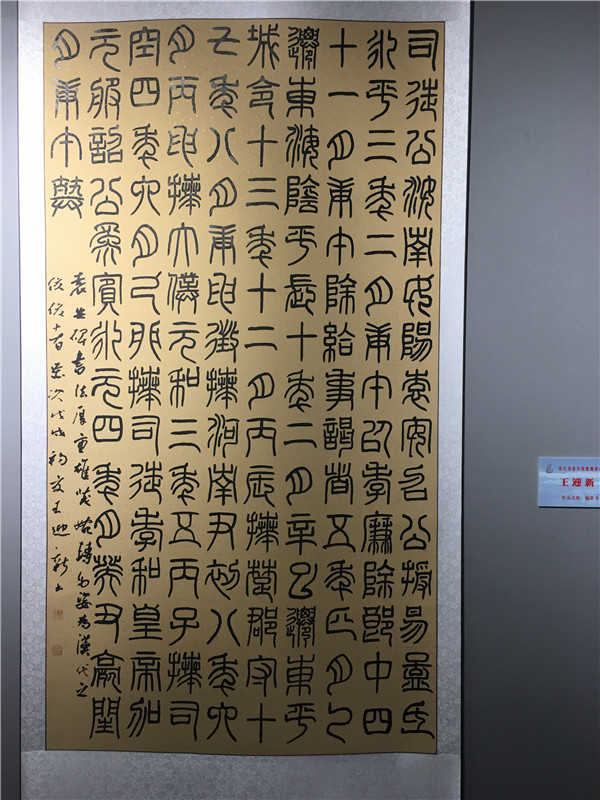 司徒公汝南女陽袁安召公授易孟氏
永平三年二月庚午以孝廉除郎中四
十一月庚午除給事謁者五年月乙
遷東海陰平長十年二月辛巳遷東平
城令十三年十二月丙辰拜楚郡守十
七年八月庚申徵拜河南尹初八年六
月丙申拜大僕元和三年五丙子拜司
空四年六月己卯拜司徒孝和皇帝加
元服詔公為賓永元四年月癸丑薨閏
月庚午葬
袁安碑書法厚重雄茂婉轉多姿為漢代之
佼佼者歲次戊戌初夏王迎新書
王迎新